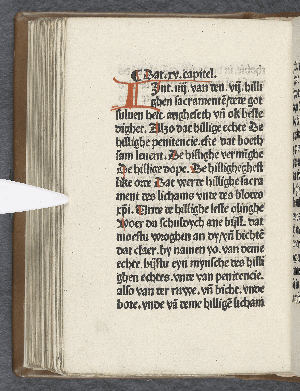 ¶ Dat. xv. capitel.
Int. iiij. van den. vij. hilli
ghen sacramente̅
suluen heft angheseth vn̅ ok beste
digher. Alzo dat hillige echte De
hillighe penitencie. efte dat boeth
sam leuent. De hillighe
De hillighe dope. De hillighe
like orde Dat werde hillighe sacra
ment des lichams vnde des blodes
cp̅i. Unde de hillighe leste olinghe
Hoer du schuldych ane byst. dat
moestu wroghen an dy vn̅ bichte̅
dat claer. by namen yo. van deme
echte. bystu eyn mynsche des hilli
ghen echtes. vnde van penitencie.
also van der ruwe. vn̅ bicht. vnde
bote. vnde va̅ deme hillige̅ licham